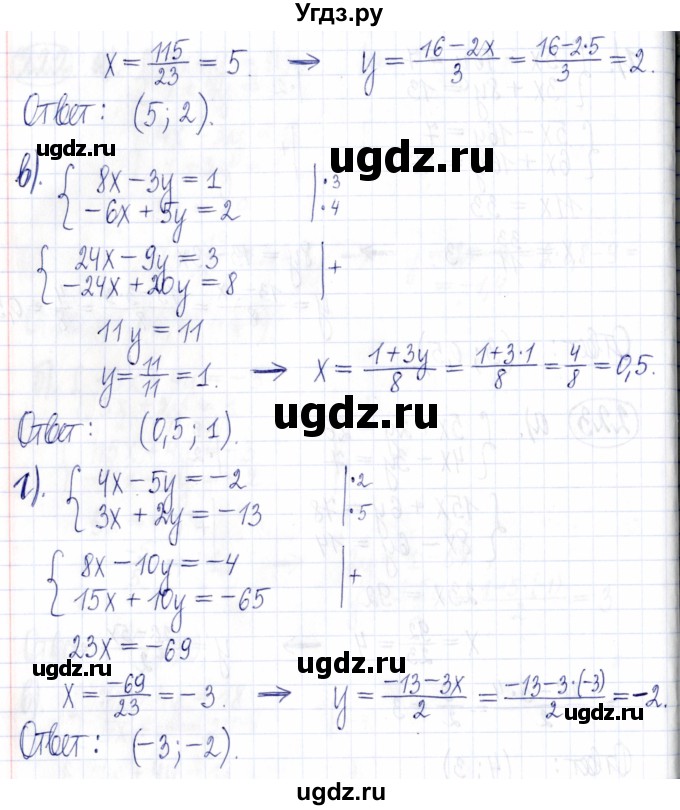 Угдз.ру
x = 115/23 = 5. → y = (16 − 2x)/3 = (16 − 2·5)/3 = 2.
Ответ: (5; 2).
ugdz.ru
ugdz.ru
в). { 8x − 3y = 1 | ·3
−6x + 5y = 2 | ·4
ugdz.ru
{ 24x − 9y = 3 | +
−24x + 20y = 8
11y = 11
y = 11/11 = 1. → x = (1 + 3y)/8 = (1 + 3·1)/8 = 4/8 = 0,5.
ugdz.ru
ugdz.ru
Ответ: (0,5; 1).
г). { 4x − 5y = −2 | ·2
3x + 2y = −13 | ·5
ugdz.ru
{ 8x − 10y = −4 | +
15x + 10y = −65
23x = −69
ugdz.ru
ugdz.ru
x = −69/23 = −3. → y = (−13 − 3x)/2 = (−13 − 3·(−3))/2 = −2.
ugdz.ru
Ответ: (−3; −2).
ugdz.ru